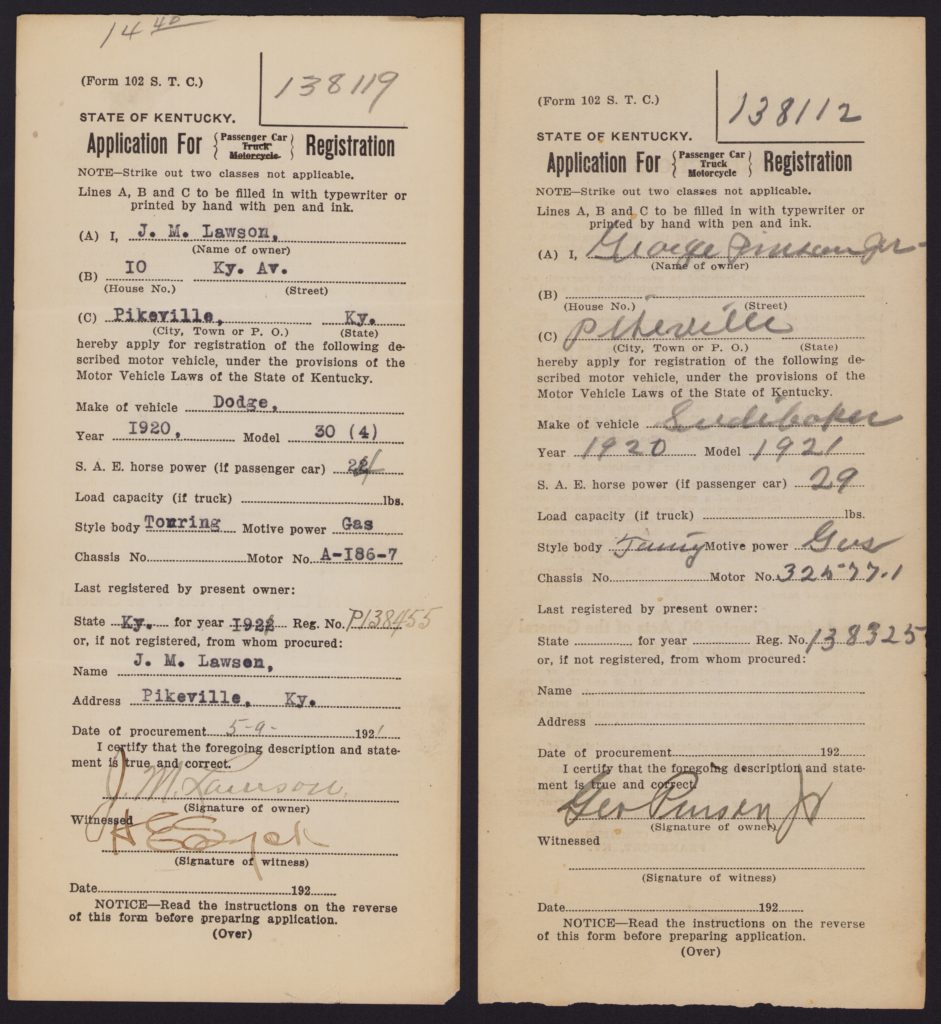 14 40
(Form 102 S. T. C.)
138119
STATE OF KENTUCKY.
Application For { Passenger Car Truck Motorcycle } Registration
NOTE—Strike out two classes not applicable.
Lines A, B and C to be filled in with typewriter or
printed by hand with pen and ink.
(A) I, J. M. Lawson,
(Name of owner)
(B) 10 Ky. Av.
(House No.) (Street)
(C) Pikeville, Ky.
(City, Town or P. O.) (State)
hereby apply for registration of the following de-
scribed motor vehicle, under the provisions of the
Motor Vehicle Laws of the State of Kentucky.
Make of vehicle Dodge,
Year 1920, Model 30 (4)
S. A. E. horse power (if passenger car) 24
Load capacity (if truck) lbs.
Style body Touring Motive power Gas
Chassis No. Motor No. A-186-7
Last registered by present owner:
State Ky. for year 192 Reg. No. P138455
or, if not registered, from whom procured:
Name J. M. Lawson,
Address Pikeville, Ky.
Date of procurement 5-9- 1921
I certify that the foregoing description and state-
ment is true and correct.
J. M. Lawson.
(Signature of owner)
Witnessed
(Signature of witness)
Date 192
NOTICE—Read the instructions on the reverse
of this form before preparing application.
(Over)
(Form 102 S. T. C.)
138112
STATE OF KENTUCKY.
Application For { Passenger Car Truck Motorcycle } Registration
NOTE—Strike out two classes not applicable.
Lines A, B and C to be filled in with typewriter or
printed by hand with pen and ink.
(A) I, George Pinson Jr
(Name of owner)
(B)
(House No.) (Street)
(C) Pikeville
(City, Town or P. O.) (State)
hereby apply for registration of the following de-
scribed motor vehicle, under the provisions of the
Motor Vehicle Laws of the State of Kentucky.
Make of vehicle Studibaker
Year 1920 Model 1921
S. A. E. horse power (if passenger car) 29
Load capacity (if truck) lbs.
Style body Motive power Gas
Chassis No. Motor No. 32577.1
Last registered by present owner:
State for year Reg. No. 138325
or, if not registered, from whom procured:
Name
Address
Date of procurement 192
I certify that the foregoing description and state-
ment is true and correct.
Geo Pinson Jr
(Signature of owner)
Witnessed
(Signature of witness)
Date 192
NOTICE—Read the instructions on the reverse
of this form before preparing application.
(Over)